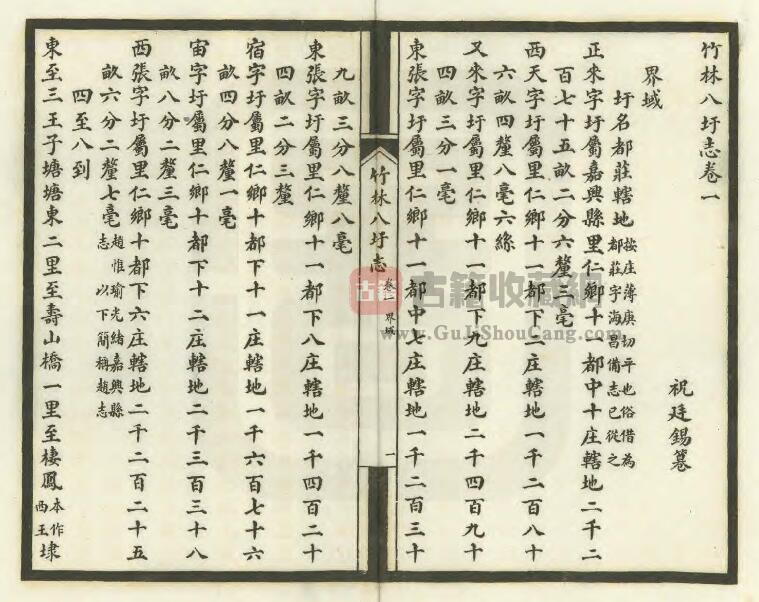 竹林八圩志卷一
祝廷錫篹
界域
圩名都莊轄地按庄薄庚切平也俗借為都莊字海昌備志已從之
正來字圩屬嘉興縣里仁鄉十一都中十庄轄地二千二
百七十五畝二分六釐三毫
西天字圩屬里仁鄉十一都下二庄轄地一千二百八十
六畝四釐八毫六絲
又來字圩屬里仁鄉十一都下九庄轄地二千四百九十
四畝三分一毫
東張字圩屬里仁鄉十一都中七庄轄地一千二百三十
竹林八圩志
卷一 界域
一
九畝三分八釐八毫
東張字圩屬里仁鄉十一都下八庄轄地一千四百二十
四畝二分三釐
宿字圩屬里仁鄉十都下十一庄轄地一千六百七十六
畝四分八釐一毫
宙字圩屬里仁鄉十都下十二庄轄地二千三百三十八
畝八分二釐三毫
西張字圩屬里仁鄉十都下六庄轄地二千二百二十五
畝六分二釐七毫趙惟瑜光緒嘉興縣志 以下簡稱趙志
四至八到
東至三王子塘塘東二里至壽山橋一里至棲鳳本作西王埭
古籍
古籍收藏網
www.GuJiShouCang.com